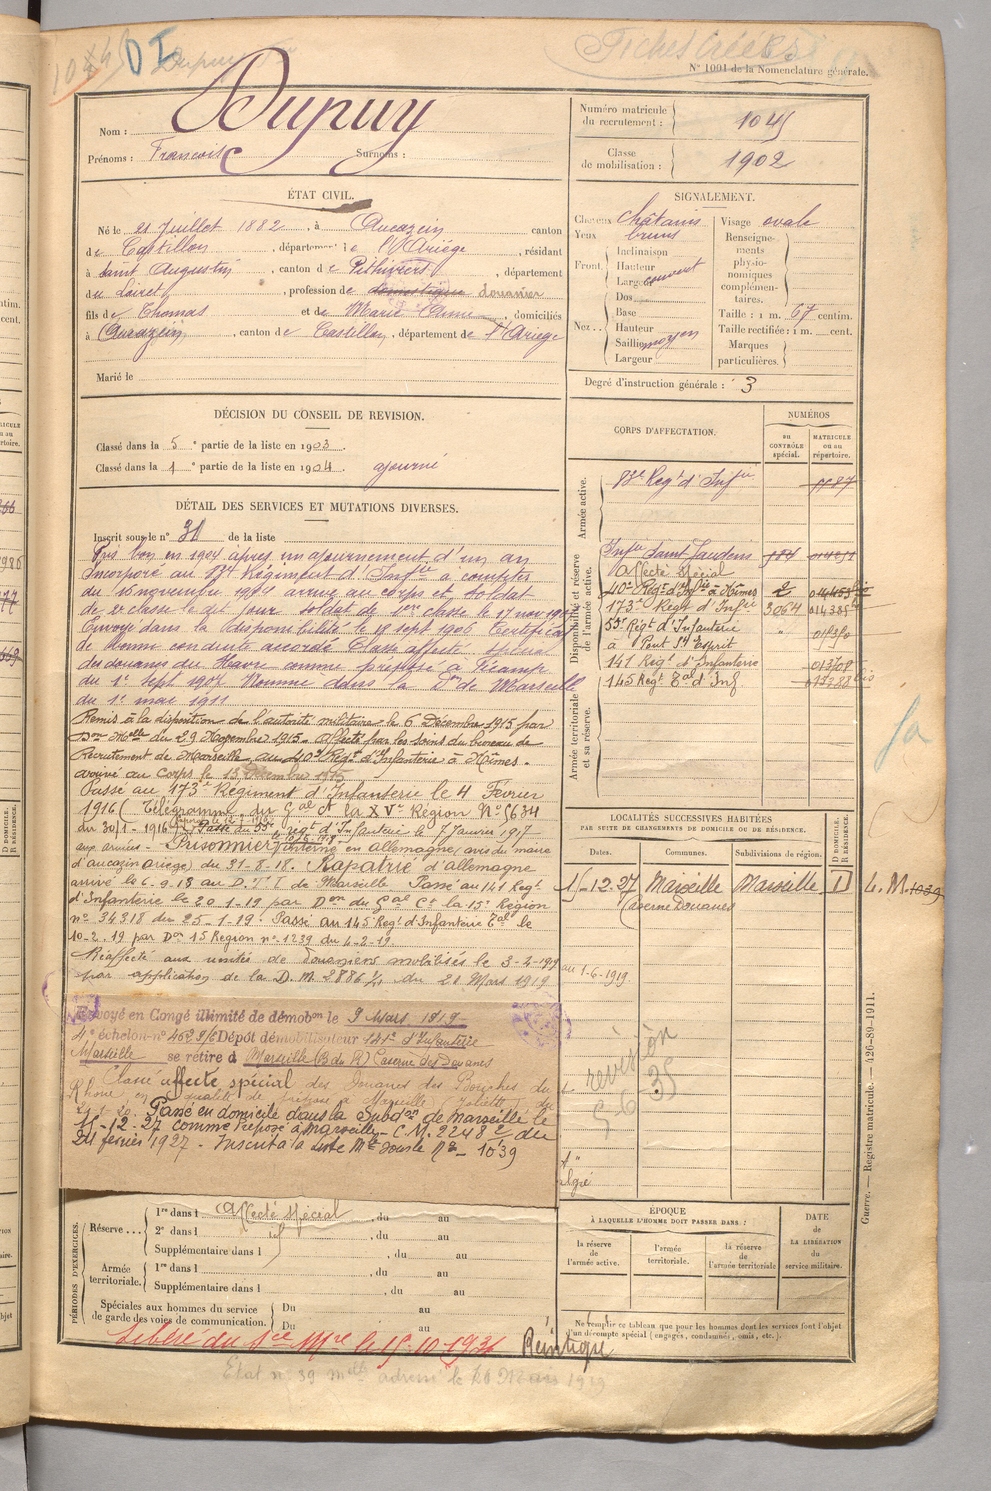 Dupuy
Fiches
N° 1001 de la Nomenclature générale.
Nom : Dupuy
Prénoms : François Surnoms :
Numéro matricule du recrutement : 1045
Classe de mobilisation : 1902
ÉTAT CIVIL.
Né le 21 Juillet 1882, à Aucazein canton
de Castillon, département de l'Ariège, résidant
à Saint Augustin, canton de Pithiviers, département
du Loiret, profession de domestique douanier
fils de Thomas et de Marie Anne, domiciliés
à Aucazein, canton de Castillon, département de l'Ariège
Marié le
SIGNALEMENT.
Cheveux châtains
Yeux bruns
Front
Inclinaison
Hauteur
Largeur couvert
Nez
Dos
Base
Hauteur
Saillie moyen
Largeur
Visage ovale
Renseignements physionomiques complémentaires.
Taille : 1 m. 67 centim.
Taille rectifiée : 1 m. cent.
Marques particulières.
Degré d'instruction générale : 3
DÉCISION DU CONSEIL DE REVISION.
Classé dans la 5e partie de la liste en 1903.
Classé dans la 1e partie de la liste en 1904. ajourné
DÉTAIL DES SERVICES ET MUTATIONS DIVERSES.
Inscrit sous le n° 31 de la liste
Pris bon en 1904 après un ajournement d'un an
Incorporé au Régiment d'Infie à compter
du 16 novembre 1904 arrivé au corps et soldat
de 2e classe le dit jour soldat de 1ere classe le 17 nov
Envoyé dans la disponibilité le 18 sept 1906 Certificat
de bonne conduite accordé Classé affecté spécial
des douanes du Havre comme préposé à Fécamp
du 1r sept 1907 Nommé dans la Don de Marseille
du 1r mai 1911
Remis à la disposition de l'autorité militaire le 6 Décembre 1915 par
Don Melle du 29 Novembre 1915. affecté par les soins du bureau de
Recrutement de Marseille au 40e Régt d'Infanterie à Nîmes.
arrivé au Corps le 15 Décembre 1915
Passé au 173e Régiment d'Infanterie le 4 Février
1916 (Télégramme du Gal Ct la XVe Région N° 5634
du 30/1-1916) Passé du 53e régt d'Infanterie le 7 Janvier 1917
aux armées - Prisonnier interné en allemagne (avis du maire
d'aucazin ariège) du 31-8-18. Rapatrié d'allemagne
arrivé le 6.9.18 au D.T.I de Marseille Passé au 141 Regt
d'Infanterie le 20-1-19 par Don du Gal Ct la 15e Region
n° 34318 du 25-1-19. Passé au 145 Regt d'Infanterie Tal le
10-2.19 par Don 15 Region n° 1239 du 4-2-19.
Réaffecté aux unités de douaniers mobilisés le 3-2-1919
par application de la D.M. 2886 1/11 du 21 Mars 1919
Envoyé en Congé illimité de démobon le 9 Mars 1919
4e échelon n° Dépôt démobilisateur 141e d'Infanterie
Marseille se retire à Marseille (B du R) Caserne des Douanes
Classé affecté spécial des Douanes des Bouches du
Rhône, en qualité de préposé à Marseille Joliette du
Passé en domicile dans la Subdon de Marseille le
15-12-27 comme Préposé à Marseille - C.M. 22482 du
fevrier 1927 - Inscrit à la liste Mle sous le N° 1039
CORPS D'AFFECTATION.
NUMÉROS
au CONTRÔLE spécial.
MATRICULE ou au répertoire.
Armée active.
Regt d'Infie
Disponibilité et réserve de l'armée active.
Infie Saint Gaudens
Affecté Spécial
40e Régt d'Infie à Nîmes 2
173e Regt d'Infie 3064
53e Régt d'Infanterie
à Pont St Esprit
141 Rigt d'Infanterie
145 Regt Tal d'Inf
Armée territoriale et sa réserve.
LOCALITÉS SUCCESSIVES HABITÉES
PAR SUITE DE CHANGEMENTS DE DOMICILE OU DE RÉSIDENCE.
Dates. Communes. Subdivisions de région. D DOMICILE. R RÉSIDENCE.
15-12-27 Marseille Marseille D L.M. 1039
Caserne Douanes
au 1-6-1919
révision
35
ÉPOQUE
À LAQUELLE L'HOMME DOIT PASSER DANS :
la réserve de l'armée active.
l'armée territoriale.
la réserve de l'armée territoriale
DATE DE LA LIBÉRATION du service militaire.
Ne remplir ce tableau que pour les hommes dont les services font l'objet d'un décompte spécial (engagés, condamnés, omis, etc.).
PÉRIODES D'EXERCICES.
Réserve...
1re dans l Affecté spécial, du au
2e dans l , du au
Supplémentaire dans l , du au
Armée territoriale.
1re dans l , du au
Supplémentaire dans l , du au
Spéciales aux hommes du service de garde des voies de communication.
Du au
Du au
Libéré du Sce Mre le 15-10-1931
Réintégré
Etat n° 39 adressé le 20 Mars 1929
Guerre. — Registre matricule. — 426-89-1911.